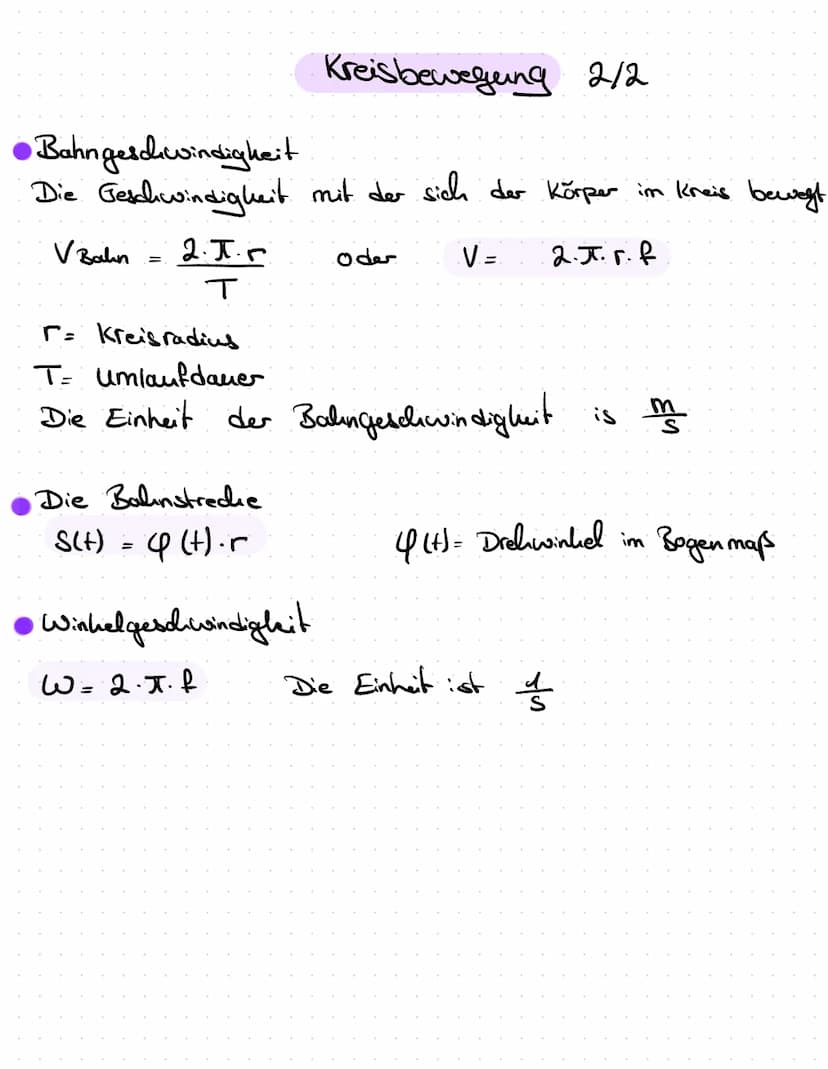 Kreisbewegung 2/2
Bahngeschwindigkeit
Die Geschwindigkeit mit der sich der Körper im Kreis bewegt
V Bahn = 2·π·r / T oder V = 2·π·r·f
r = Kreisradius
T = Umlaufdauer
Die Einheit der Bahngeschwindigkeit is m/s
Die Bahnstrecke
S(t) = φ(t)·r φ(t) = Drehwinkel im Bogenmaß
Winkelgeschwindigkeit
ω = 2·π·f Die Einheit ist 1/s